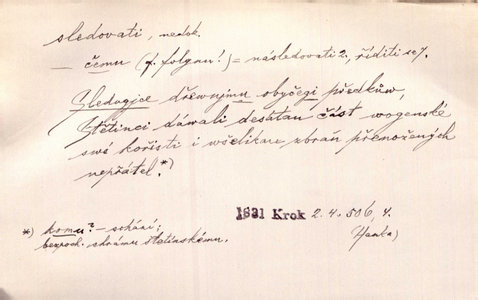 sledovati, nedok.
— čemu (f. folgau!) = následovati 2, říditi se 7.
Sledugjce dřewnjmu obyčegi předkůw,
Štětinci dáwali desátau část wogenské
swé kořisti i wšelikau zbraň přemožených
nepřátel.*)
1831 Krok 2. 4. 506, 4.
Hanka)
*) komu? — schází;
bezpoch. chrámu štětinskému.